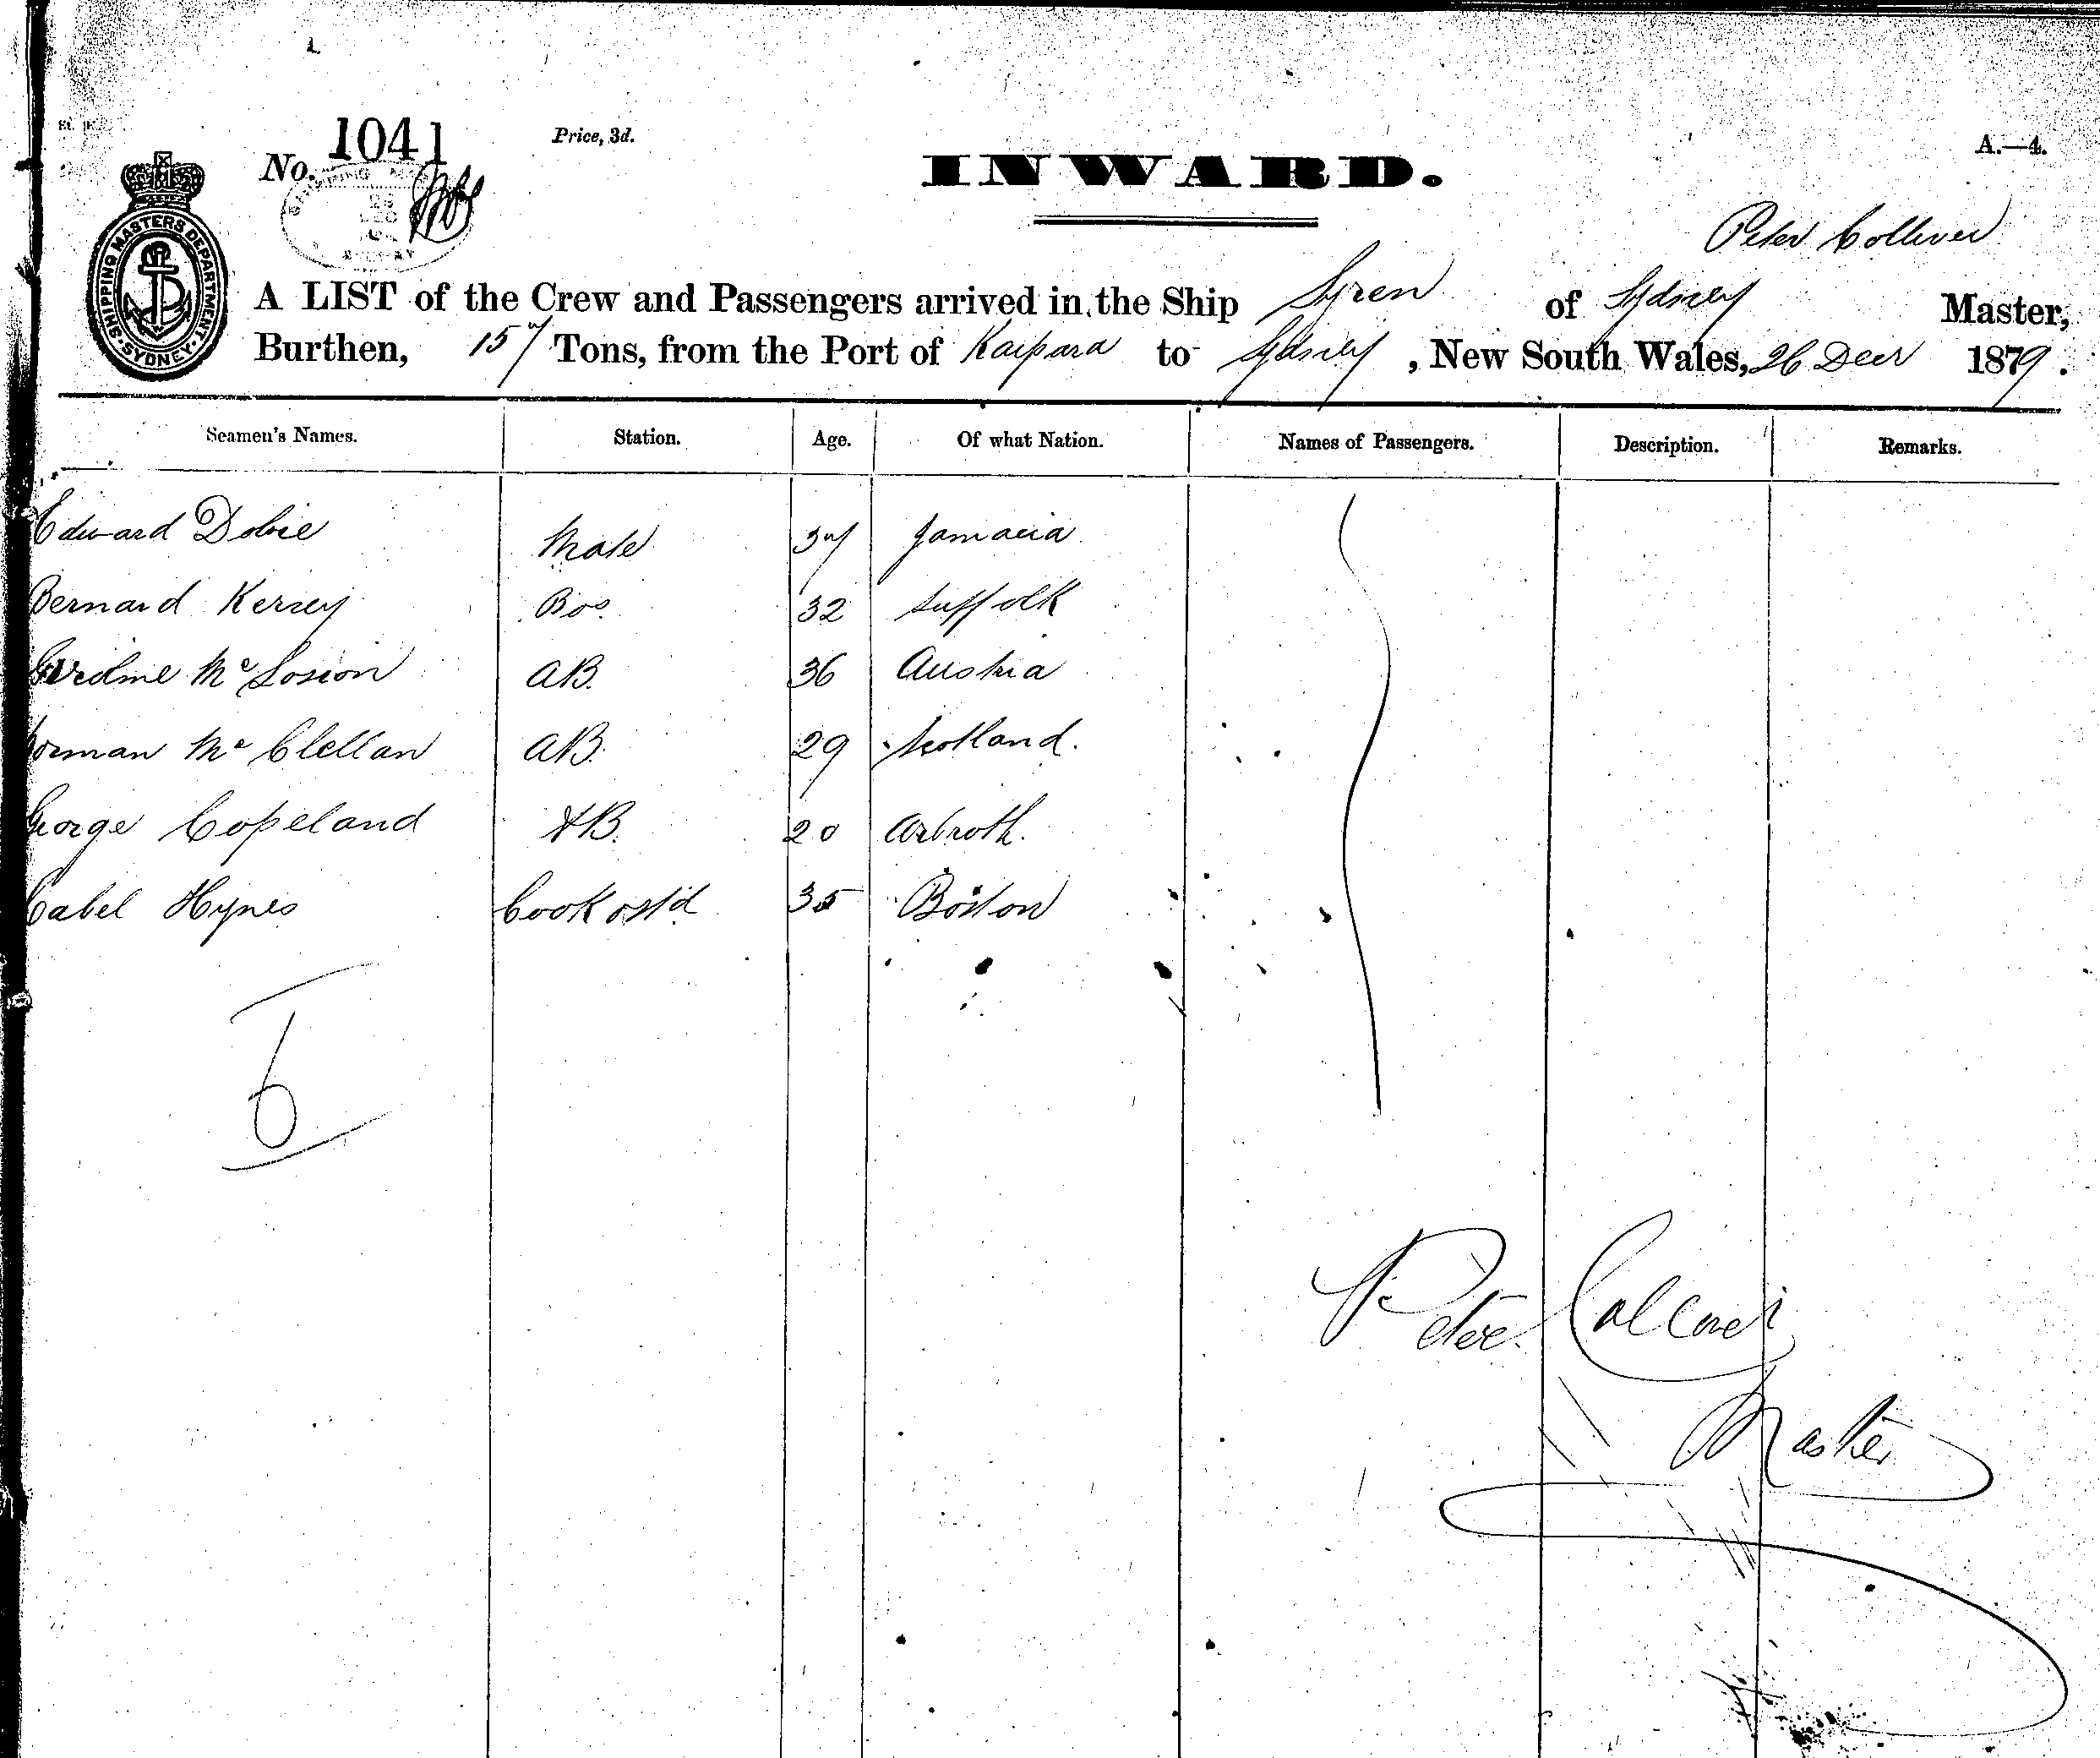 No. 1041
Price, 3d.
A.—4.
INWARD.
SHIPPING MASTERS DEPARTMENT · SYDNEY ·
Peter Colliver
A LIST of the Crew and Passengers arrived in the Ship Syren of Sydney Master,
Burthen, 157 Tons, from the Port of Kaipara to Sydney, New South Wales, 26 Decr 1879.
Seamen's Names. Station. Age. Of what Nation. Names of Passengers. Description. Remarks.
Edward Dobie Mate 37 Jamacia
Bernard Kersey Bos. 32 Suffolk
Mc AB. 36 Austria
Norman Mc Clellan AB. 29 Scotland.
George Copeland AB. 20 Arbroth.
Cabel Hynes Cook & Std 35 Boston
6
Peter
Master